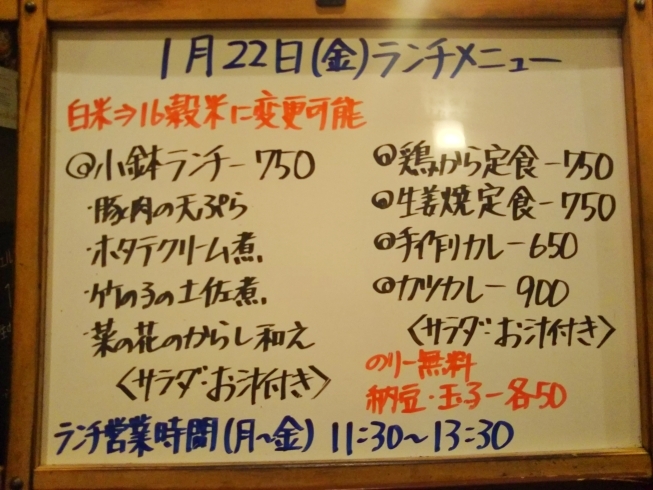 1月22日(金)ランチメニュー
白米⇒16穀米に変更可能
◎小鉢ランチー750
・豚肉の天ぷら
・ホタテクリーム煮
・竹の子の土佐煮
・菜の花のからし和え
〈サラダ・お汁付き〉
◎鶏から定食ー750
◎生姜焼定食ー750
◎手作りカレー650
◎カツカレー900
〈サラダ・お汁付き〉
のりー無料
納豆・玉子ー各50
ランチ営業時間(月〜金) 11:30〜13:30